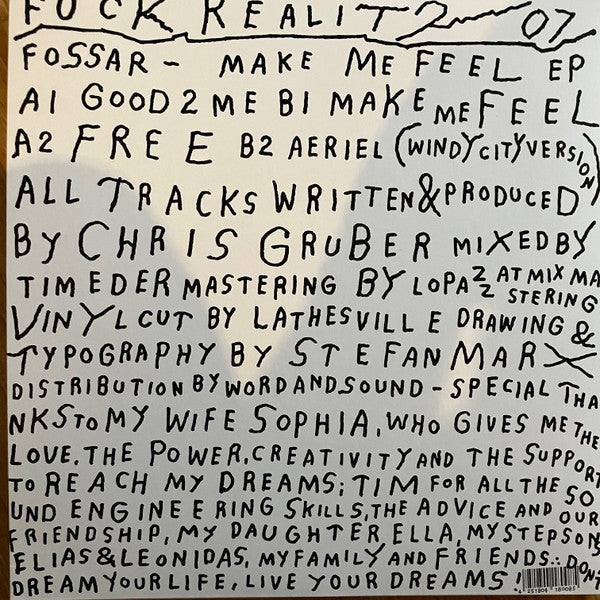 FUCK REALITY 07
FOSSAR - MAKE ME FEEL EP
A1 GOOD 2 ME B1 MAKE ME FEEL
A2 FREE B2 AERIEL (WINDYCITYVERSION)
ALL TRACKS WRITTEN & PRODUCED
BY CHRIS GRUBER MIXED BY
TIM EDER MASTERING BY LOPAZZ AT MIX MA
STERING
VINYL CUT BY LATHESVILLE DRAWING &
TYPOGRAPHY BY STEFAN MARX
DISTRIBUTION BY WORDANDSOUND - SPECIAL THA
NKS TO MY WIFE SOPHIA, WHO GIVES ME THE
LOVE, THE POWER, CREATIVITY AND THE SUPPORT
TO REACH MY DREAMS; TIM FOR ALL THE SO
UND ENGINEERING SKILLS, THE ADVICE AND OUR
FRIENDSHIP, MY DAUGHTER ELLA, MY STEPSONS
ELIAS & LEONIDAS, MY FAMILY AND FRIENDS.: DON'T
DREAM YOUR LIFE, LIVE YOUR DREAMS!
4 251804 189085